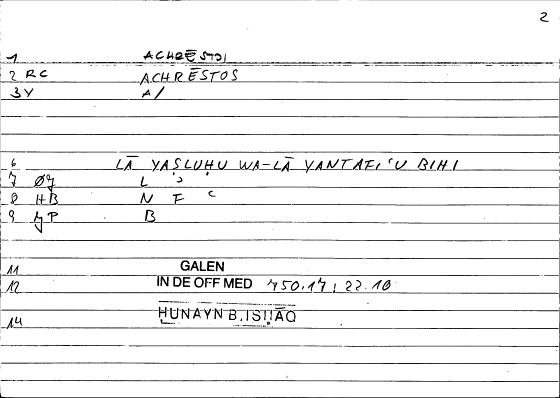 2
1 ACHRĒSTOI
2 RC ACHRĒSTOS
3 Y A/
6 LĀ YAṢLUḤU WA-LĀ YANTAFIʿU BIHI
7 ØJ L Ṣ
8 HB N F ʿ
9 JP B
11 GALEN
12 IN DE OFF MED 750.17; 22.10
14 ḤUNAYN B.ISḤĀQ